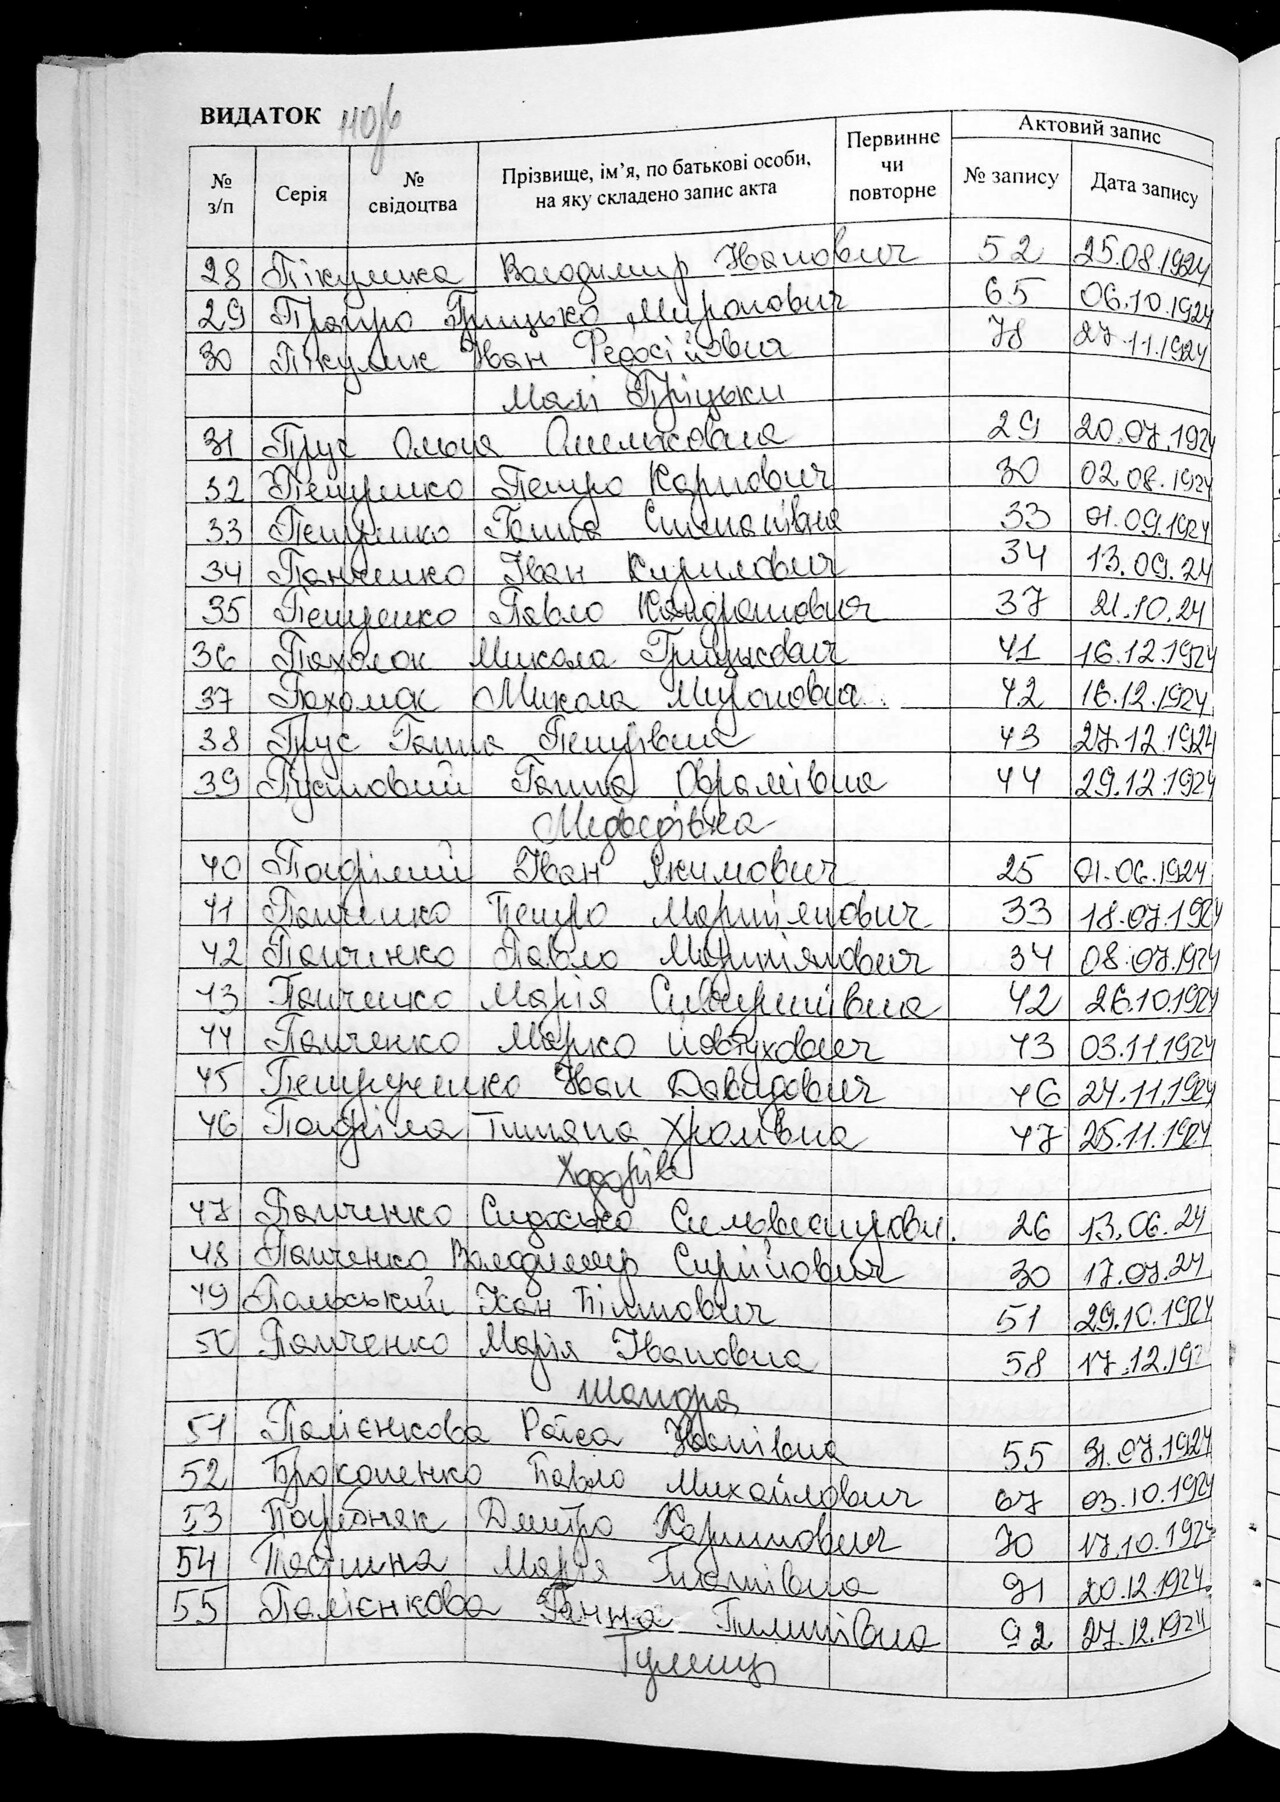 ВИДАТОК 110
№ з/п Серія № свідоцтва Прізвище, ім’я, по батькові особи, на яку складено запис акта Первинне чи повторне Актовий запис
№ запису Дата запису
28 Пікушка Володимир Іванович 52 25.08.1924
29 Грицько Миронович 65 06.10.1924
30 Пікулик Іван Федосійович 78 27.11.1924
Малі Пріцьки
31 Прус Ольга Омелківна 29 20.07.1924
32 Петренко Петро Карпович 30 02.08.1924
33 Ганна Степанівна 33 01.09.1924
34 Панченко Іван Кирилович 34 13.09.24
35 Павло Кондратович 37 21.10.24
36 Пахолок Микола Грицькович 41 16.12.1924
37 Пахолок Микола Миронович 42 16.12.1924
38 Прус Ганна Петрівна 43 27.12.1924
39 Пустовий Ганна Оврамівна 44 29.12.1924
Медведівка
40 Іван Якимович 25 01.06.1924
41 Панченко Петро Мартіянович 33 18.07.1924
42 Панченко Павло Мартіянович 34 08.07.1924
43 Панченко Марія 42 26.10.1924
44 Панченко Марко Йовтухович 43 03.11.1924
45 Іван Давидович 46 24.11.1924
46 Панфіла Титяна Хролівна 47 25.11.1924
Ходорів
47 Панченко Сидосько Сильвестрови. 26 13.06.24
48 Панченко Володимир Сергійович 30 17.07.24
49 Польський Іван Пилипович 51 29.10.1924
50 Панченко Марія Івановна 58 17.12.192
Шандра
51 Палієнкова Раїса Іванівна 55 31.07.1924
52 Проколенко Павло Михайлович 67 03.10.1924
53 Дмитро Харитонович 70 17.10.1924
54 Марія 91 20.12.1924
55 Палієнкова Ганна Пилипівна 92 27.12.1924
Тулинці